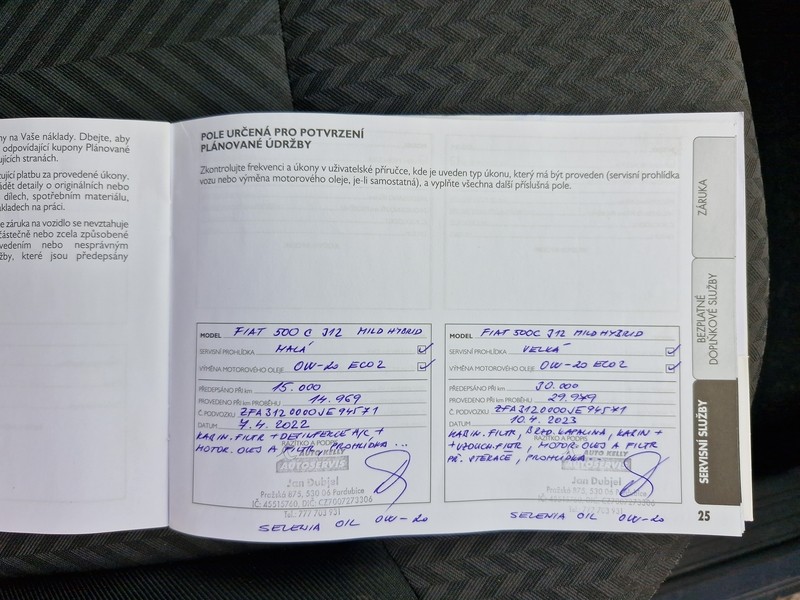 ny na Vaše náklady. Dbejte, aby
odpovídající kupony Plánované
ujících stranách.
tující platbu za provedené úkony.
ádět detaily o originálních nebo
dílech, spotřebním materiálu,
ákladech na práci.
e záruka na vozidlo se nevztahuje
částečně nebo zcela způsobené
vedením nebo nesprávným
žby, které jsou předepsány
POLE URČENÁ PRO POTVRZENÍ
PLÁNOVANÉ ÚDRŽBY
Zkontrolujte frekvenci a úkony v uživatelské příručce, kde je uveden typ úkonu, který má být proveden (servisní prohlídka
vozu nebo výměna motorového oleje, je-li samostatná), a vyplňte všechna další příslušná pole.
MODEL FIAT 500 C 312 MILD HYBRID
SERVISNÍ PROHLÍDKA MALÁ
VÝMĚNA MOTOROVÉHO OLEJE 0W-20 ECO2
PŘEDEPSÁNO PŘI km 15.000
PROVEDENO PŘI KM PROBĚHU 14.969
Č. PODVOZKU ZFA3120000JE94571
DATUM 7.4.2022
KABIN. FILTR + DETINFEKCE A/C +
MOTOR. OLEJ A FILTR, PROHLÍDKA...
RAZÍTKO A PODPIS
AUTO KELLY
AUTOSERVIS
Jan Dubjel
Pražská 875, 530 06 Pardubice
IČ: 45515760, DIČ: CZ7007273206
Tel.: 777 703 931
SELENIA OIL 0W-20
MODEL FIAT 500C 312 MILD HYBRID
SERVISNÍ PROHLÍDKA VELKÁ
VÝMĚNA MOTOROVÉHO OLEJE 0W-20 ECO2
PŘEDEPSÁNO PŘI km 30.000
PROVEDENO PŘI KM PROBĚHU 29.979
Č. PODVOZKU ZFA3120000JE94571
DATUM 10.4.2023
KABIN. FILTR, BRZD. KAPALINA, KABIN +
+ VZDUCH. FILTR, MOTOR. OLEJ A FILTR
PŘ. STĚRAČE, PROHLÍDKA...
RAZÍTKO A PODPIS
AUTO KELLY
AUTOSERVIS
Jan Dubjel
Pražská 875, 530 06 Pardubice
SELENIA OIL 0W-20
ZÁRUKA
BEZPLATNÉ
DOPLŇKOVÉ SLUŽBY
SERVISNÍ SLUŽBY
25